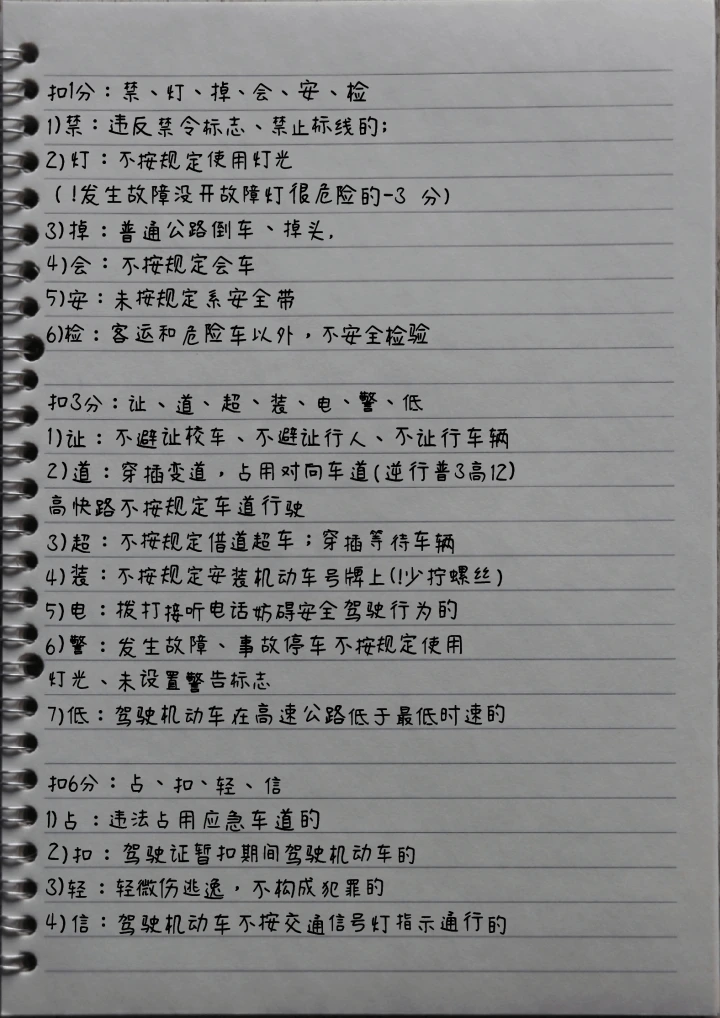 扣1分：禁、灯、掉、会、安、检
1)禁：违反禁令标志、禁止标线的；
2)灯：不按规定使用灯光
（!发生故障没开故障灯很危险的-3 分）
3)掉：普通公路倒车、掉头,
4)会：不按规定会车
5)安：未按规定系安全带
6)检：客运和危险车以外，不安全检验
扣3分：让、道、超、装、电、警、低
1)让：不避让校车、不避让行人、不让行车辆
2)道：穿插变道，占用对向车道(逆行普3高12)
高快路不按规定车道行驶
3)超：不按规定借道超车；穿插等待车辆
4)装：不按规定安装机动车号牌上(!少拧螺丝)
5)电：拨打接听电话妨碍安全驾驶行为的
6)警：发生故障、事故停车不按规定使用
灯光、未设置警告标志
7)低：驾驶机动车在高速公路低于最低时速的
扣6分：占、扣、轻、信
1)占：违法占用应急车道的
2)扣：驾驶证暂扣期间驾驶机动车的
3)轻：轻微伤逃逸，不构成犯罪的
4)信：驾驶机动车不按交通信号灯指示通行的